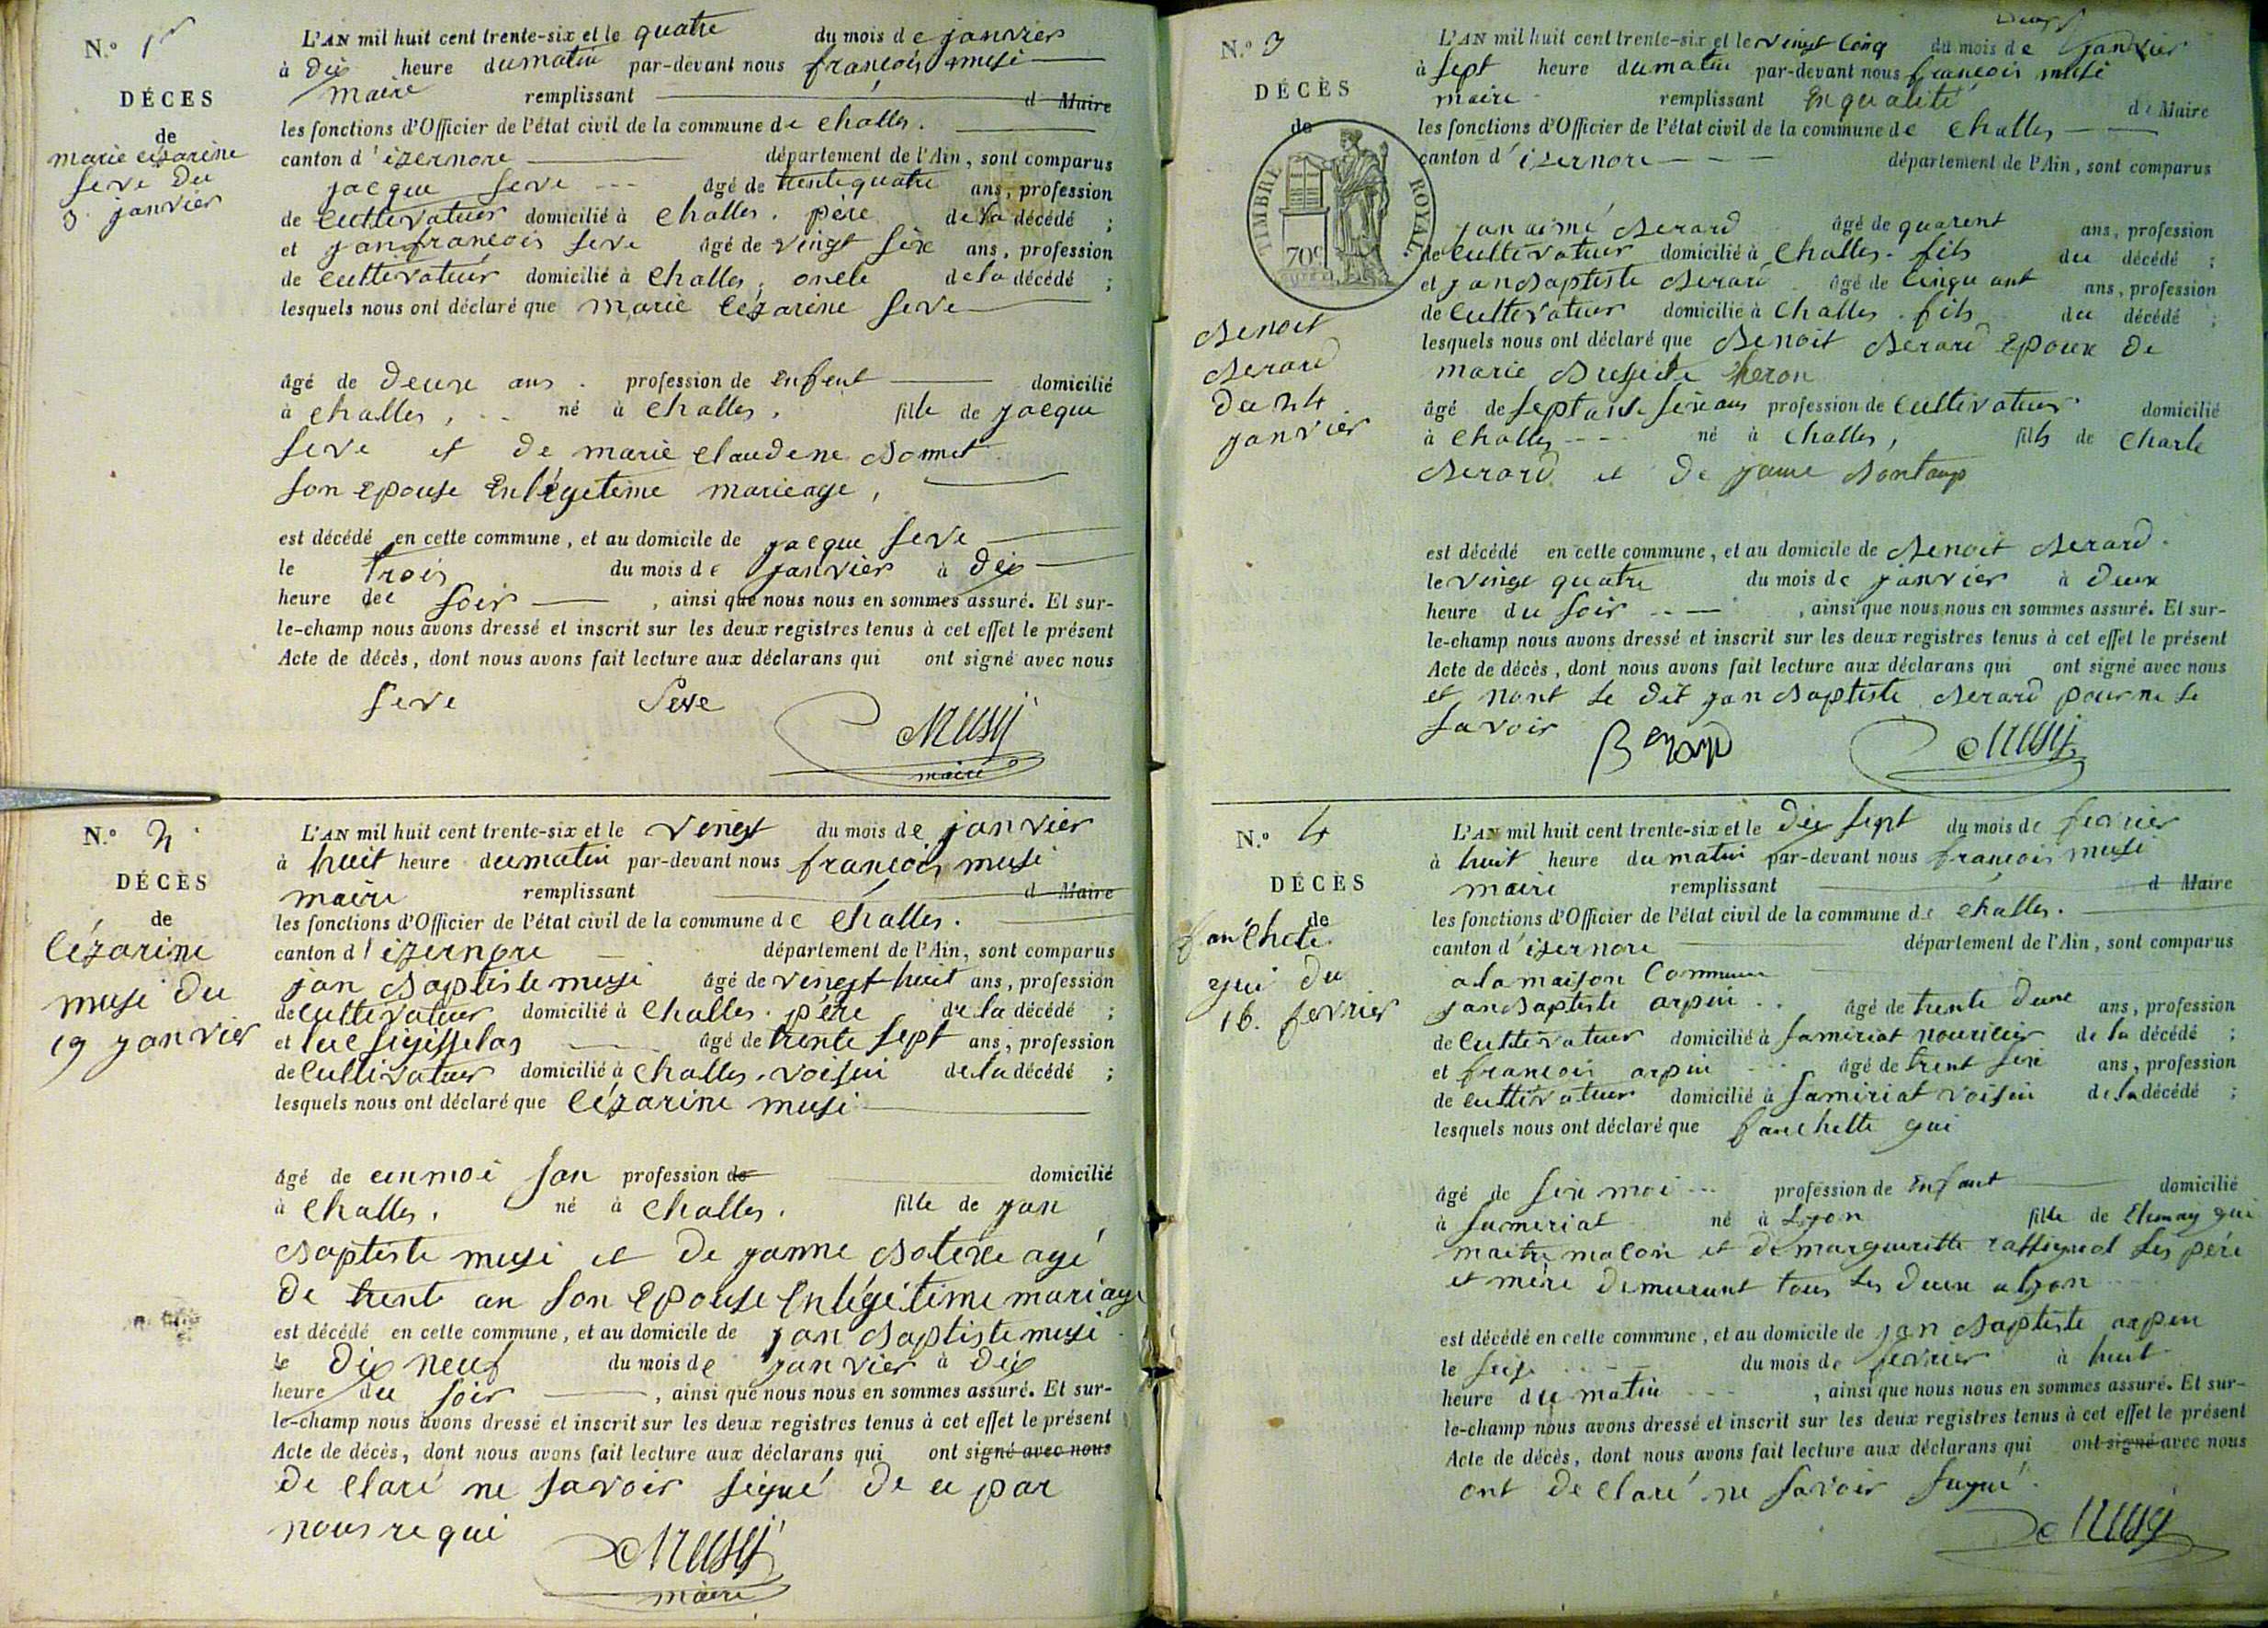 N.º 1r
DÉCES
de
marie cézarine
seve du
3 janvier
L'AN mil huit cent trente-six et le quatre du mois de janvier
à dix heure du matin par-devant nous françois musi
maire remplissant d Maire
les fonctions d'Officier de l'état civil de la commune de challes.
canton d'izernore département de l'Ain, sont comparus
jacque seve âgé de trente quatre ans, profession
de cultivateur domicilié à challes. père de la décédé ;
et jan françois seve âgé de vingt six ans, profession
de cultivateur domicilié à challes, oncle de la décédé ;
lesquels nous ont déclaré que marie cézarine seve
âgé de deux ans. profession de enfent domicilié
à challes, né à challes, fille de jacque
seve et de marie claudene Bomet
son epouse enlégeteme marieage,
est décédé en cette commune, et au domicile de jacque seve
le trois du mois de janvier à dix
heure due soir, ainsi que nous nous en sommes assuré. Et sur-
le-champ nous avons dressé et inscrit sur les deux registres tenus à cet effet le présent
Acte de décès, dont nous avons fait lecture aux déclarans qui ont signé avec nous
seve Seve Musy
maire
N.º 2
DÉCÈS
de
Cézarine
musi du
19 janvier
L'AN mil huit cent trente-six et le vingt du mois de janvier
à huit heure du matin par-devant nous françois musi
maire remplissant d Maire
les fonctions d'Officier de l'état civil de la commune de challes.
canton d'izernore département de l'Ain, sont comparus
jan Baptiste musi âgé de vingt huit ans, profession
de cultivateur domicilié à challes. père de la décédé ;
et luc âgé de trente sept ans, profession
de cultivateur domicilié à challes. voisin de la décédé ;
lesquels nous ont déclaré que cézarine musi
âgé de un moi san profession de domicilié
à challes. né à challes. fille de jan
Baptiste musi et de janne agé
de trente an son epouse enlégitime mariage
est décédé en cette commune, et au domicile de jan Baptiste musi
le dix neuf du mois de janvier à dix
heure du soir, ainsi que nous nous en sommes assuré. Et sur-
le-champ nous avons dressé et inscrit sur les deux registres tenus à cet effet le présent
Acte de décès, dont nous avons fait lecture aux déclarans qui ont signé avec nous
de claré ne savoir signé de ce par
nous requi Musy
maire
N.º 3
DÉCÈS
de
TIMBRE ROYAL.
70c
Benoit
Berard
du 24
janvier
L'AN mil huit cent trente-six et le vingt cinq du mois de janvier
à sept heure du matin par-devant nous francois musi
maire remplissant en qualité de Maire
les fonctions d'Officier de l'état civil de la commune de challes
canton d'izernore département de l'Ain, sont comparus
jan aimé Berard âgé de quarent ans, profession
de cultivateur domicilié à challes. fils du décédé ;
et jan Baptiste Berard âgé de cinquant ans, profession
de cultivateur domicilié à challes. fils du décédé ;
lesquels nous ont déclaré que Benoit Berard epoux de
marie heron
âgé de septante six ans profession de cultivateur domicilié
à challes né à challes, fils de charle
Berard et de janne Bontamp
est décédé en cette commune, et au domicile de Benoit Berard.
le vingt quatre du mois de janvier à deux
heure du soir, ainsi que nous nous en sommes assuré. Et sur-
le-champ nous avons dressé et inscrit sur les deux registres tenus à cet effet le présent
Acte de décès, dont nous avons fait lecture aux déclarans qui ont signé avec nous
et nont le dit jan Baptiste Berard pour ne le
savoir Berard Musy
N.º 4
DÉCÈS
de
fanchete
gui du
16. fevrier
L'AN mil huit cent trente-six et le dix sept du mois de fevrier
à huit heure du matin par-devant nous françois musi
maire remplissant d Maire
les fonctions d'Officier de l'état civil de la commune de challes.
canton d'izernore département de l'Ain, sont comparus
a la maison commune
jan Baptiste arpin âgé de trente deux ans, profession
de cultivateur domicilié à samériat nouricier de la décédé ;
et francois arpin âgé de trent six ans, profession
de cultivateur domicilié à samiriat voisin de la décédé ;
lesquels nous ont déclaré que fanchette gui
âgé de six moi profession de enfant domicilié
à sameriat né à Lyon fille de gui
maitre macon et de margueritte rassignol les père
et mère demurant tous les deux a lyon
est décédé en cette commune, et au domicile de jan Baptiste arpin
le seize du mois de fevrier à huit
heure du matin, ainsi que nous nous en sommes assuré. Et sur-
le-champ nous avons dressé et inscrit sur les deux registres tenus à cet effet le présent
Acte de décès, dont nous avons fait lecture aux déclarans qui ont signé avec nous
ont de claré ne savoir signé.
Musy